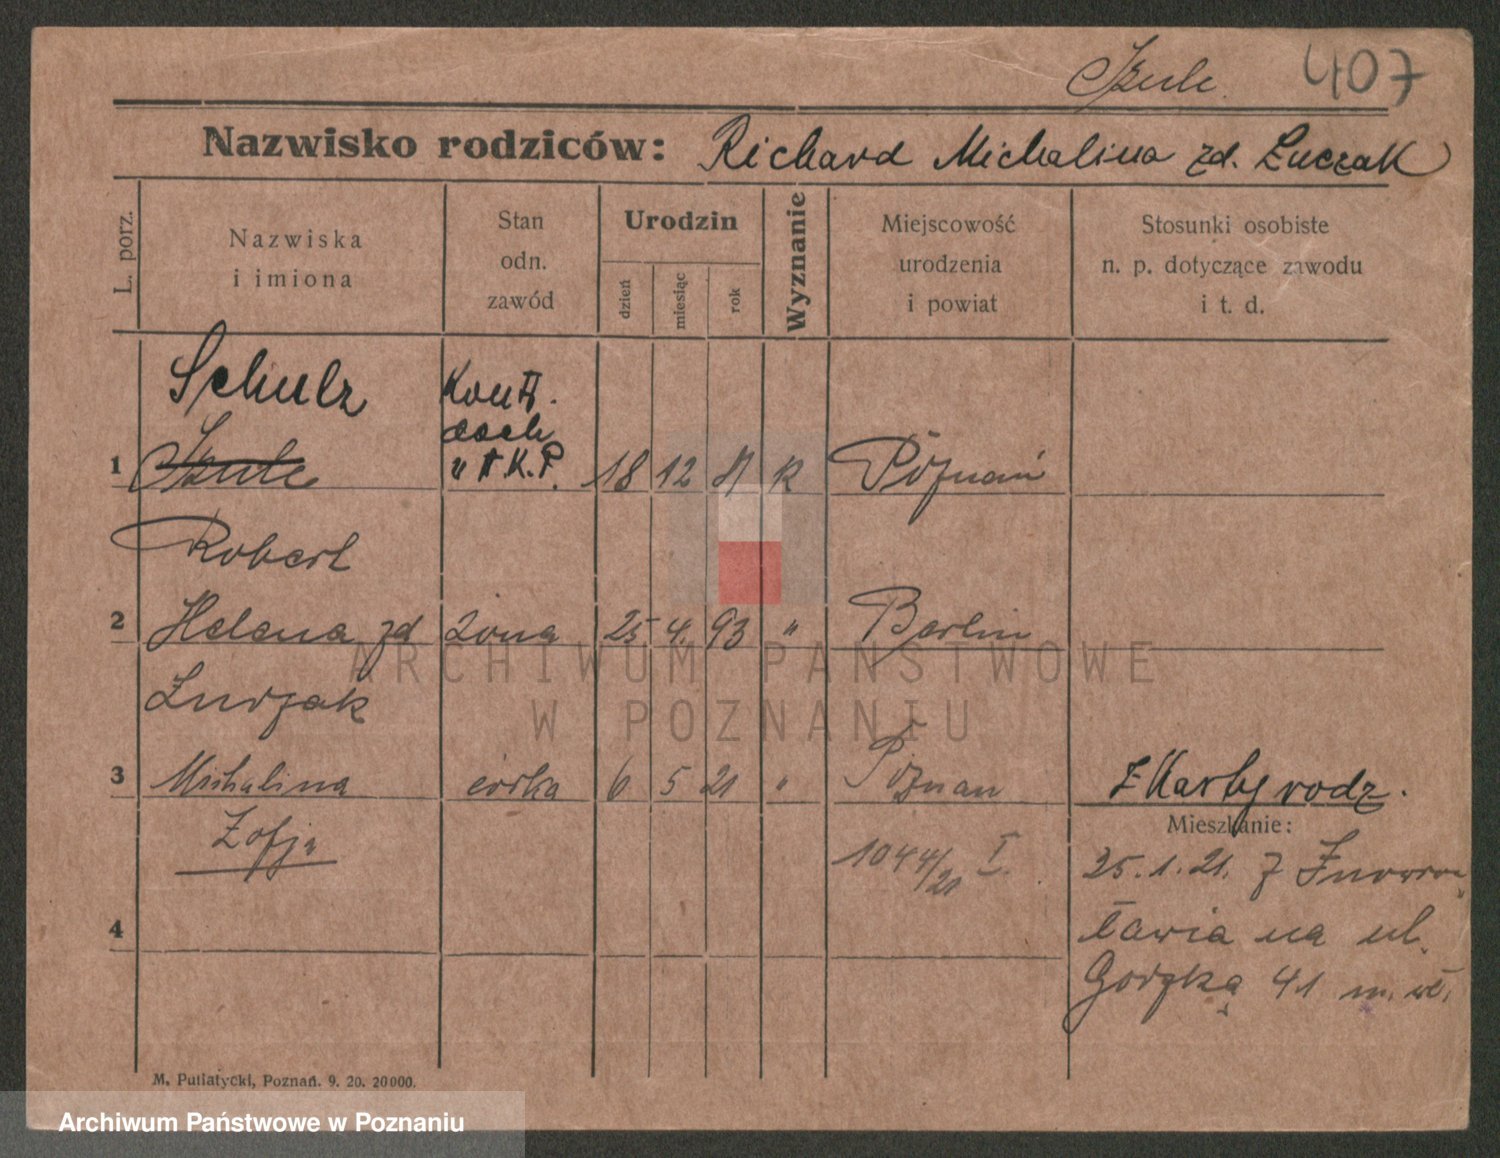 Szulc.
407
Nazwisko rodziców: Richard Michalina zd. Łuczak
L. porz.
Nazwiska i imiona
Stan odn. zawód
Urodzin
dzień
miesiąc
rok
Wyznanie
Miejscowość urodzenia i powiat
Stosunki osobiste n. p. dotyczące zawodu i t. d.
Schulz
1 Szulc 18 12 R Poznań
Robert
2 Helena zd żona 25 4. 93 " Berlin
Łuczak
3 Michalina córka 6 5 21 " Poznań z Karty rodz.
Zofja
1044/21 I.
Mieszkanie:
25.1.21. z Inowroc
ławia na ul.
41 m.
4
M. Putiatycki, Poznań. 9. 20. 20000.
ARCHIWUM PAŃSTWOWE
W POZNANIU
Archiwum Państwowe w Poznaniu